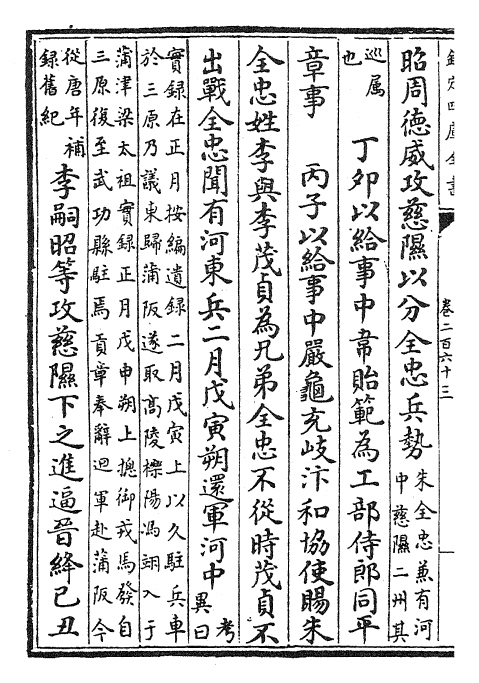 欽定四庫全書
卷二百六十三
昭周德威攻慈隰以分全忠兵勢
朱全忠兼有河
中慈隰二州其
巡属
也
丁卯以給事中韋貽範為工部侍郎同平
章事　丙子以給事中嚴龜充岐汴和協使賜朱
全忠姓李與李茂貞為兄弟全忠不從時茂貞不
出戰全忠聞有河東兵二月戊寅朔還軍河中
考
異曰
實録在正月按編遺録二月戊寅上以久駐兵車
於三原乃議東歸蒲阪遂取髙陵櫟陽馮翊入于
蒲津梁太祖實録正月戊申朔上揔御戎馬發自
三原復至武功縣駐焉貢章奉辭迴軍赴蒲阪今
從唐年補
録舊紀
李嗣昭等攻慈隰下之進逼晉絳已丑